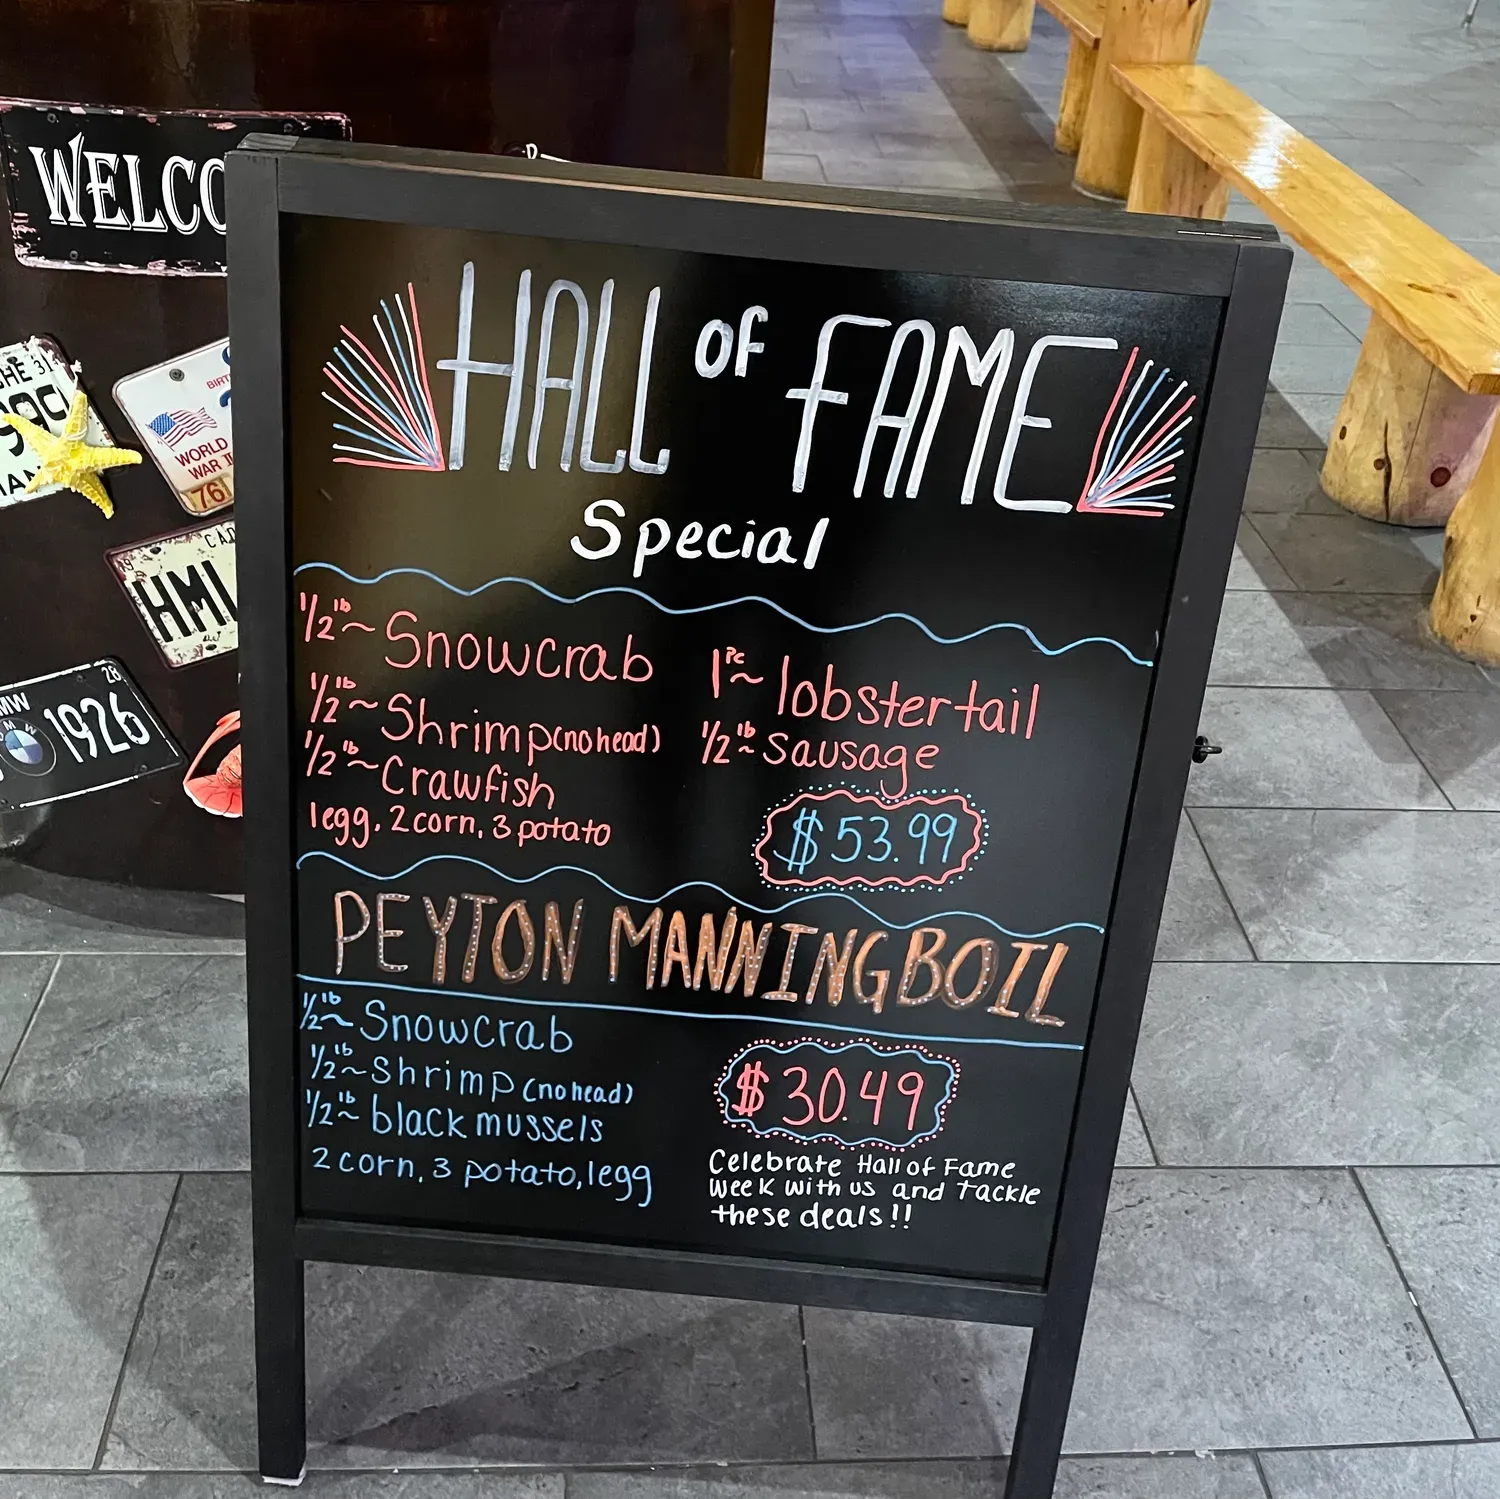 WELCO
HALL OF FAME
Special
1/2 lb ~ Snowcrab
1/2 lb ~ Shrimp (no head)
1/2 lb ~ Crawfish
1egg, 2 corn, 3 potato
1 pc ~ lobster tail
1/2 lb ~ sausage
$53.99
PEYTON MANNING BOIL
1/2 lb ~ Snowcrab
1/2 lb ~ Shrimp (no head)
1/2 lb ~ black mussels
2 corn, 3 potato, 1egg
$30.49
Celebrate Hall of Fame
Week with us and tackle
these deals!!
HE 31
99C
BIRT
WORLD
WAR II
76
CAD
HML
MW
28
1926